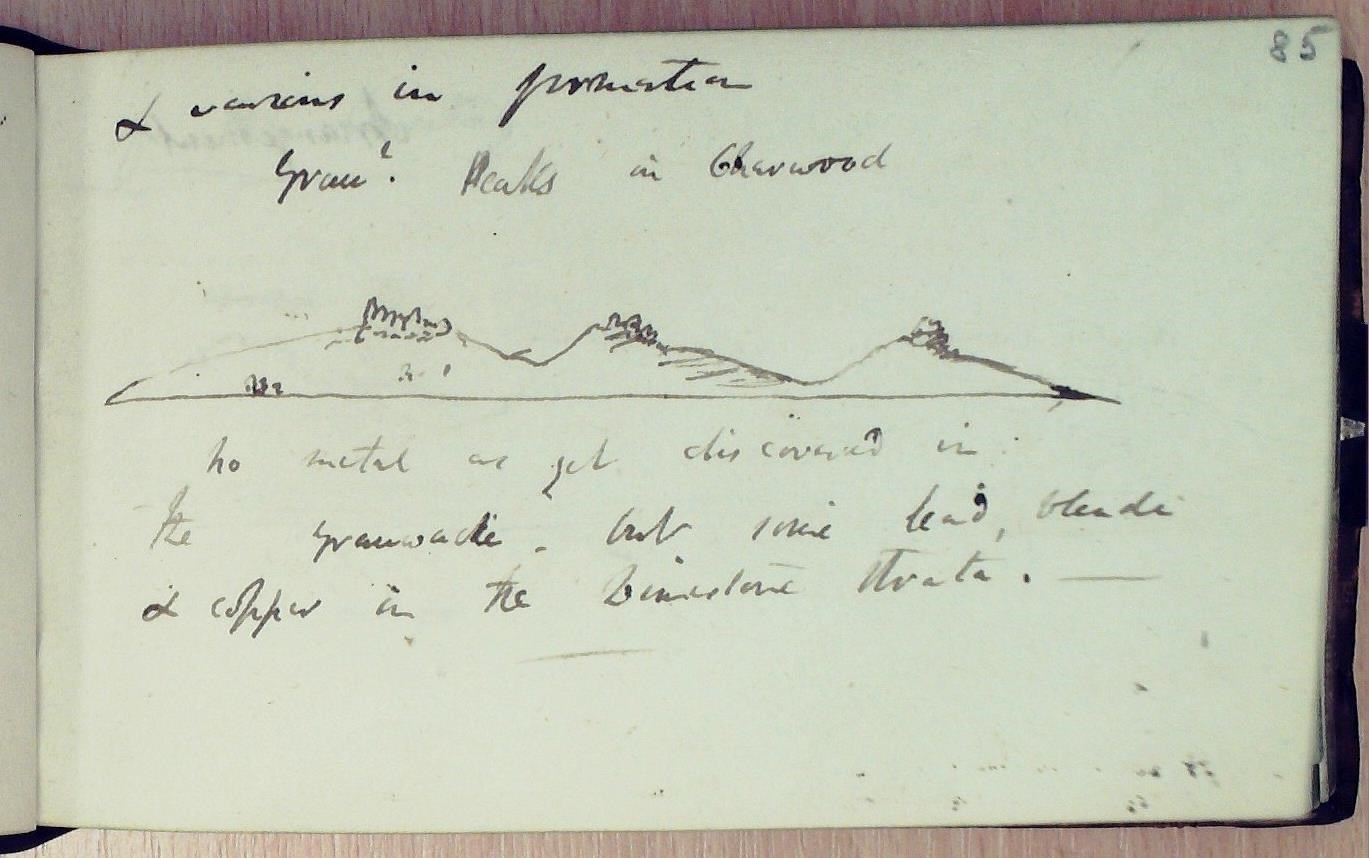 85
& various in formation
Grau? Peaks in Charwood
no metal as yet discovered in
the Grauwacke. but some lead, blende
& copper in the Limestone Strata. —